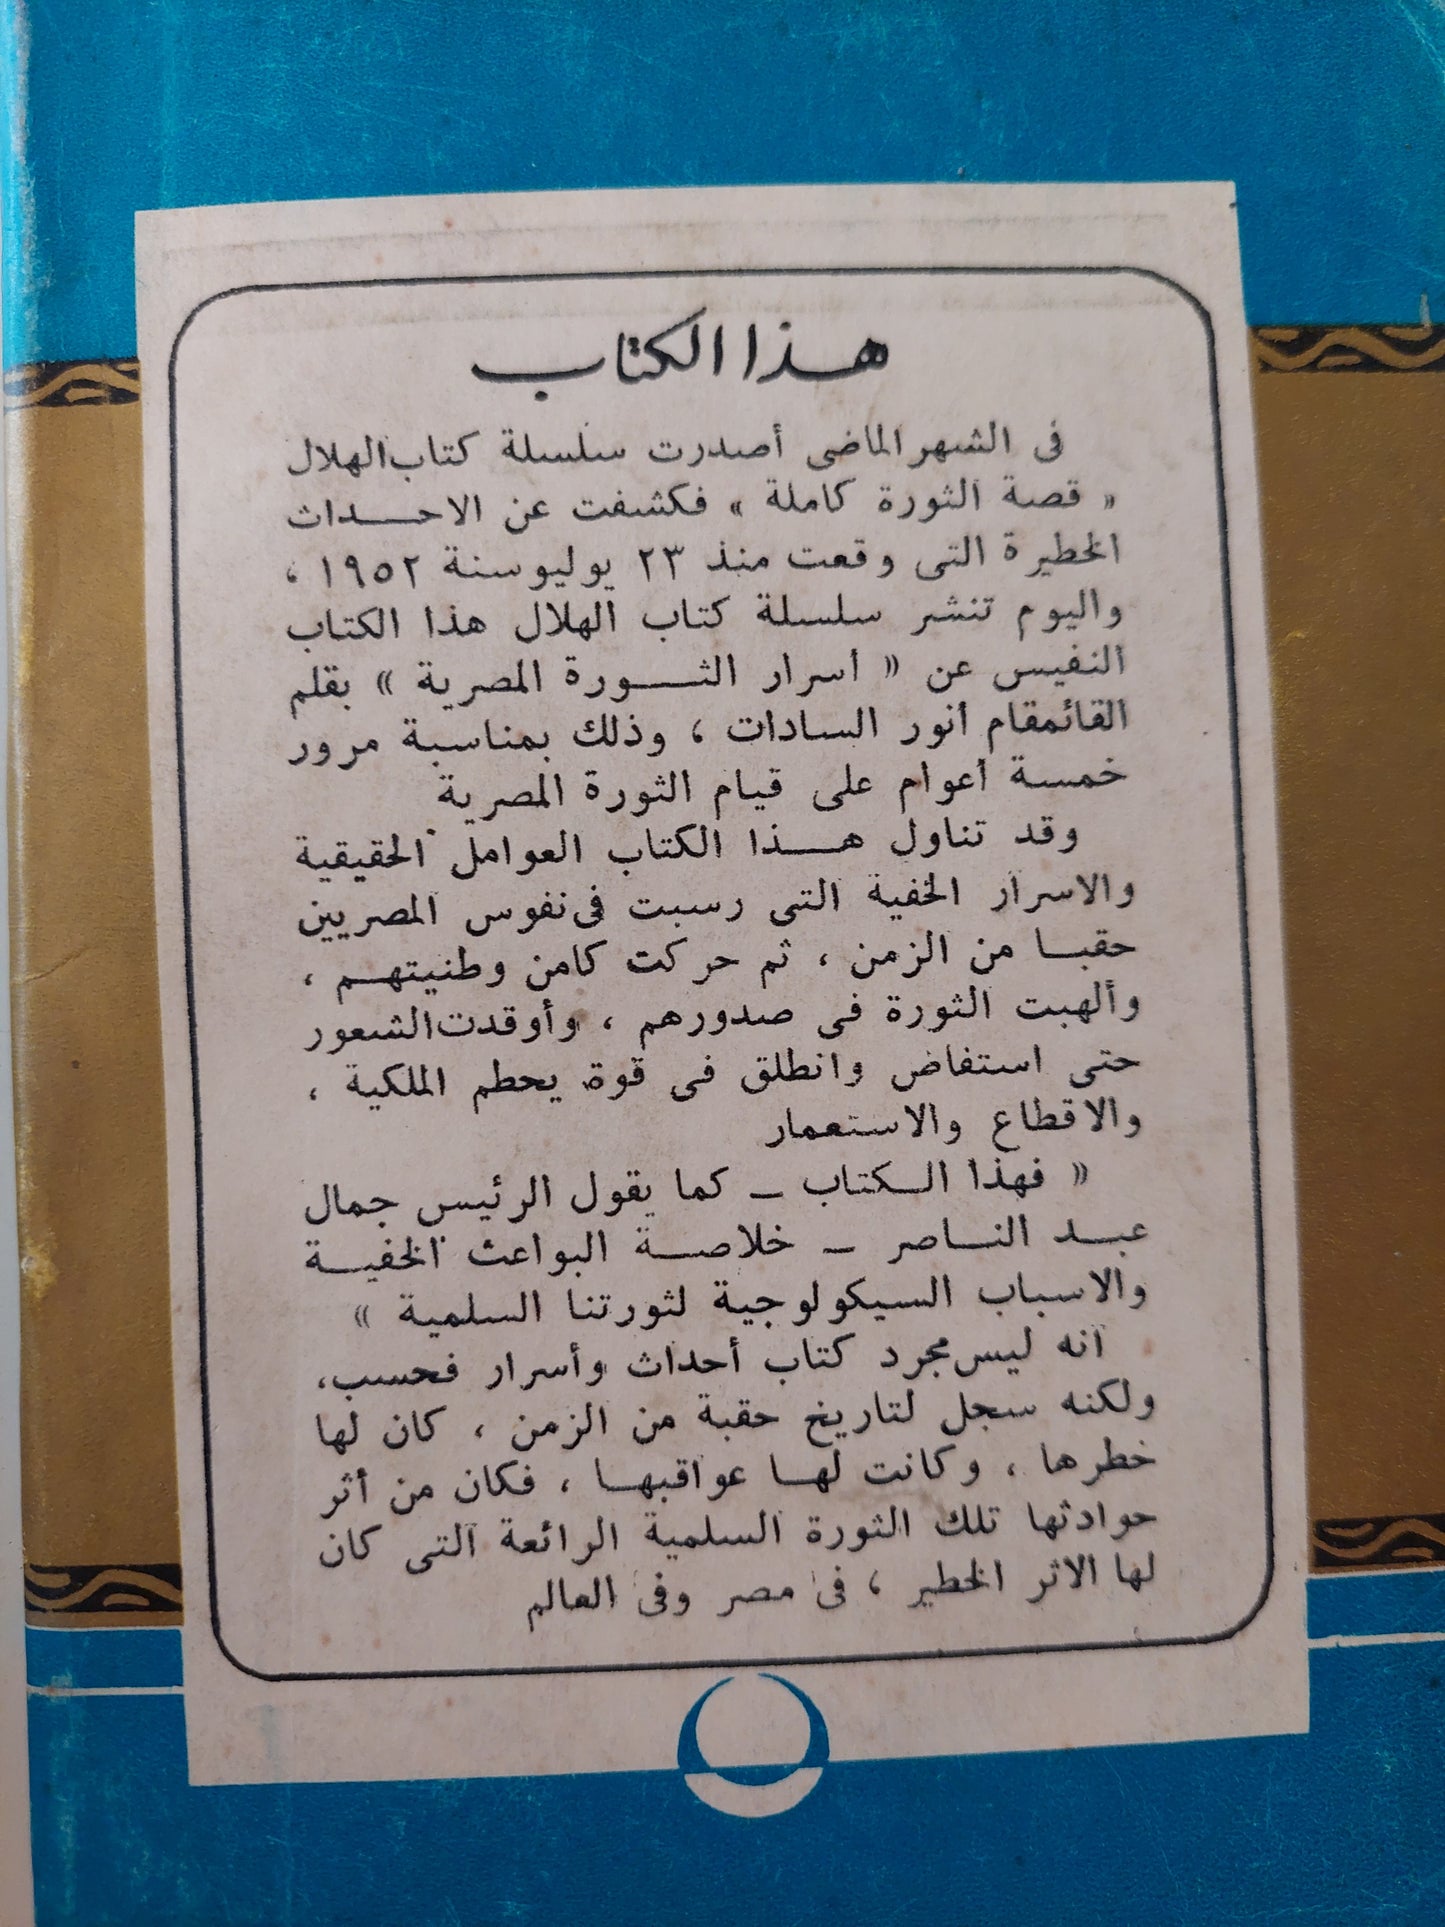 هذا الكتاب
فى الشهر الماضى أصدرت سلسلة كتاب الهلال
« قصة الثورة كاملة » فكشفت عن الاحداث
الخطيرة التى وقعت منذ ٢٣ يوليو سنة ١٩٥٢ ،
واليوم تنشر سلسلة كتاب الهلال هذا الكتاب
النفيس عن « أسرار الثورة المصرية » بقلم
القائمقام أنور السادات ، وذلك بمناسبة مرور
خمسة أعوام على قيام الثورة المصرية
وقد تناول هذا الكتاب العوامل الحقيقية
والاسرار الخفية التى رسبت فى نفوس المصريين
حقبا من الزمن ، ثم حركت كامن وطنيتهم ،
وألهبت الثورة فى صدورهم ، وأوقدت الشعور
حتى استفاض وانطلق فى قوة يحطم الملكية ،
والاقطاع والاستعمار
« فهذا الكتاب – كما يقول الرئيس جمال
عبد الناصر – خلاصة البواعث الخفية
والاسباب السيكولوجية لثورتنا السلمية »
انه ليس مجرد كتاب أحداث وأسرار فحسب،
ولكنه سجل لتاريخ حقبة من الزمن ، كان لها
خطرها ، وكانت لها عواقبها ، فكان من أثر
حوادثها تلك الثورة السلمية الرائعة التى كان
لها الاثر الخطير ، فى مصر وفى العالم